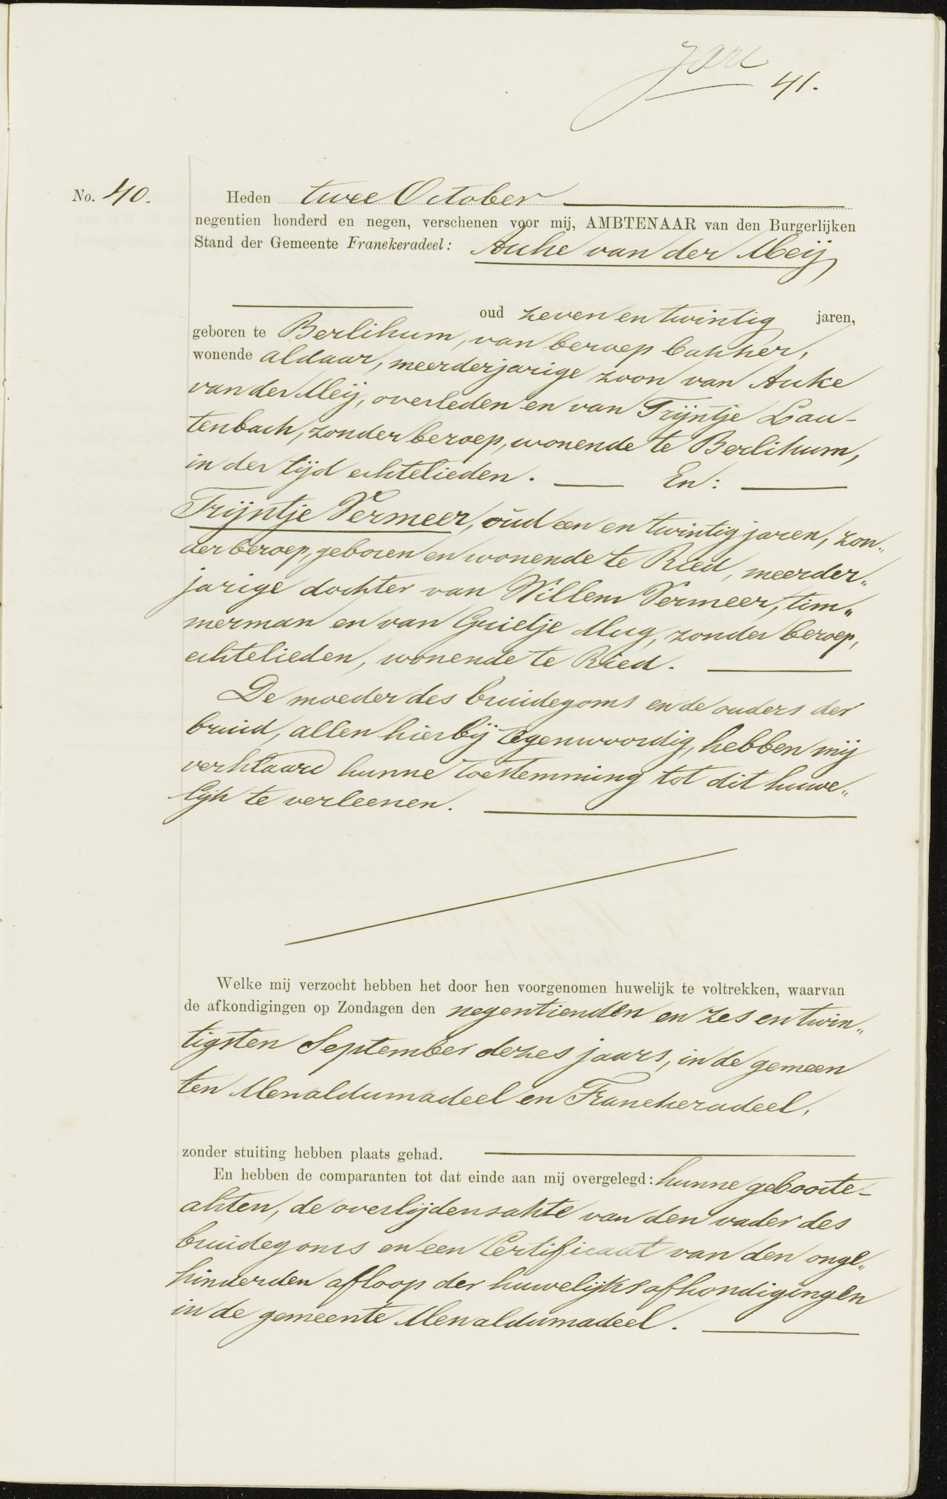 41.
No. 40.
Heden twee October
negentien honderd en negen, verschenen voor mij, AMBTENAAR van den Burgerlijken
Stand der Gemeente Franekeradeel: Auke van der Meij,
oud zeven en twintig jaren,
geboren te Berlikum, van beroep bakker,
wonende aldaar, meerderjarige zoon van Auke
van der Meij, overleden en van Trijntje Lau-
tenbach, zonder beroep, wonende te Berlikum,
in der tijd echtelieden. En:
Trijntje Vermeer, oud een en twintig jaren, zon-
der beroep, geboren en wonende te Ried, meerder-
jarige dochter van Willem Vermeer, tim-
merman en van Grietje Mug, zonder beroep,
echtelieden, wonende te Ried.
De moeder des bruidegoms en de ouders der
bruid, allen hierbij tegenwoordig, hebben mij
verklaard hunne toestemming tot dit huwe-
lijk te verleenen.
Welke mij verzocht hebben het door hen voorgenomen huwelijk te voltrekken, waarvan
de afkondigingen op Zondagen den negentienden en zes en twin-
tigsten September dezes jaars, in de gemeen
ten Menaldumadeel en Franekeradeel,
zonder stuiting hebben plaats gehad.
En hebben de comparanten tot dat einde aan mij overgelegd: hunne geboorte-
akten, de overlijdensakte van den vader des
bruidegoms en een Certificaat van den onge-
hinderden afloop der huwelijksafkondigingen
in de gemeente Menaldumadeel.